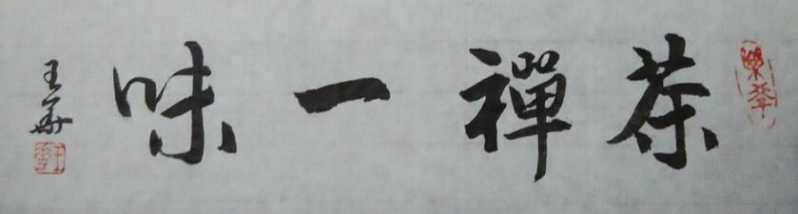 茶禪一味
王華